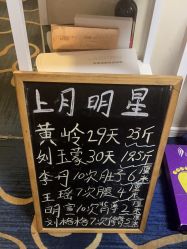 上月明星
黄岭29天23斤
刘玉蒙30天19.5斤
李丹10次肚子6厘米
王瑶7次腿4厘米
明言10次背
刘杨杨7次